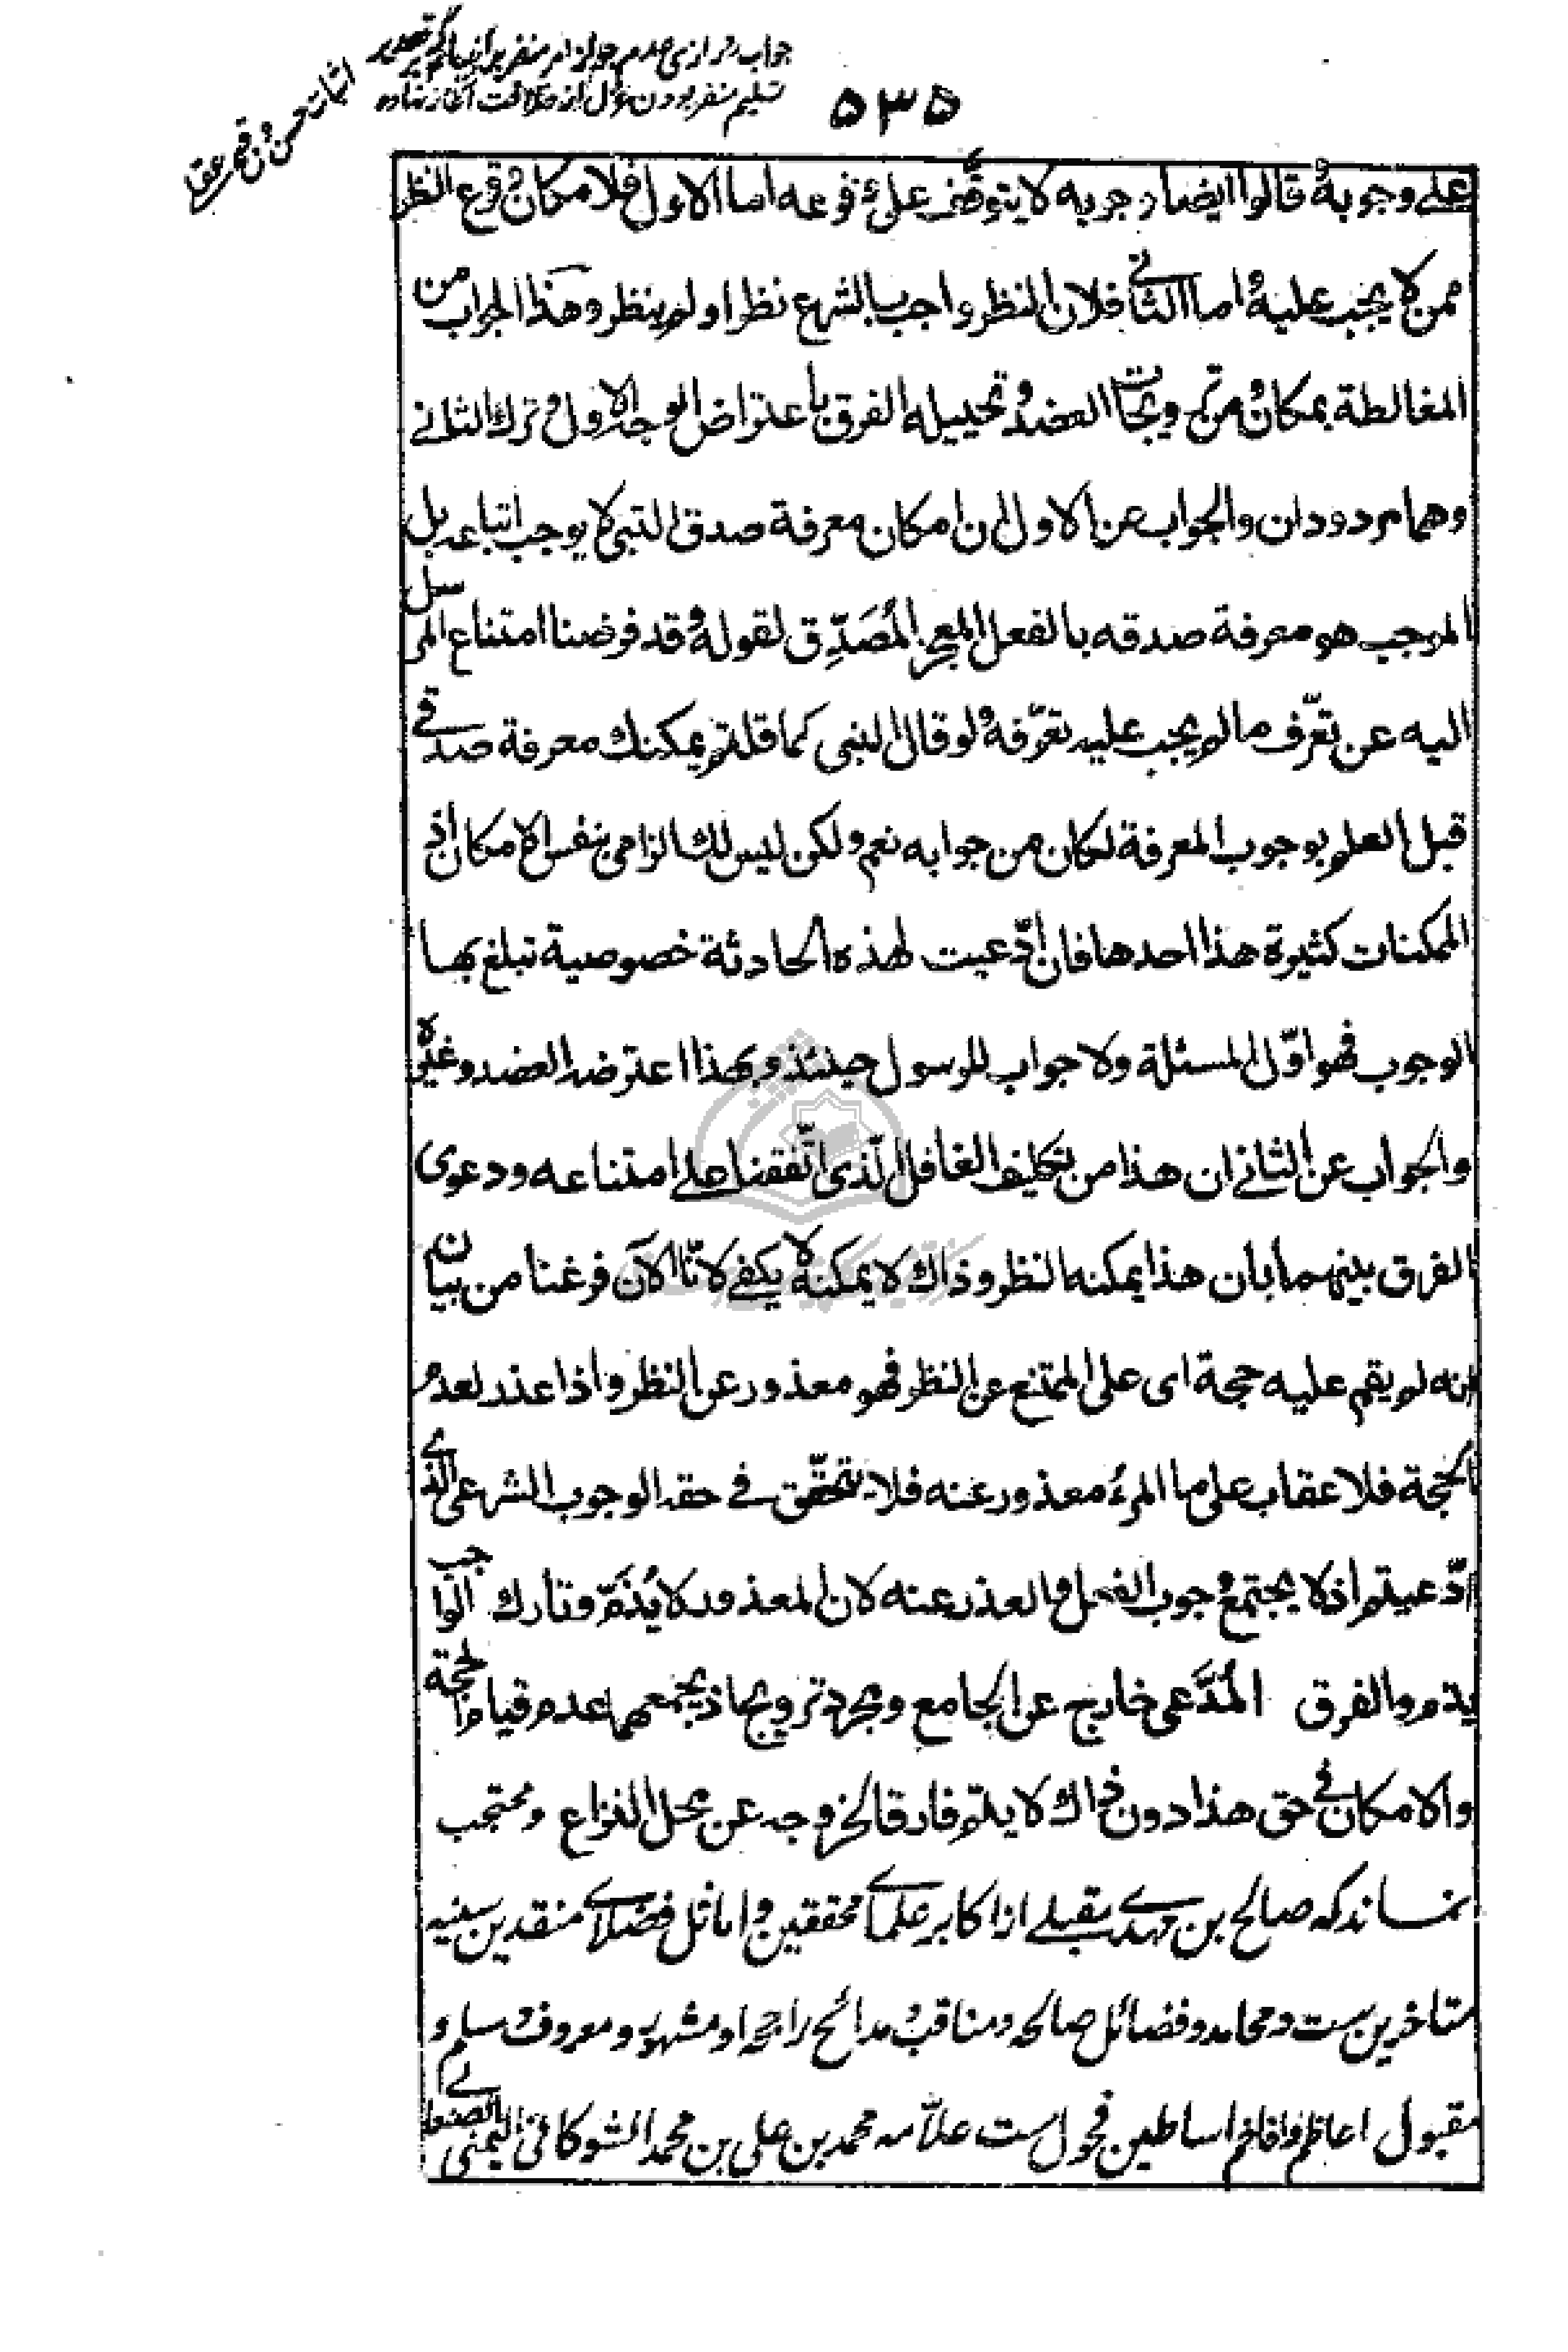 جواب رازی عدم جواز امر منفر بر انبیا
تسلیم منفر بودن عزل از خلافت آغاز نهاده
اثبات حسن و قبح عقلی
۵۳۵
علی وجوبه و قالوا ایضا وجوبه لا یتوقف علی وقوعه اما الاول فلامکان وقوع النظر
ممن لا یجب علیه و اما الثانی فلان النظر واجب بالشرع نظر او لم ینظر و هذا الجواب من
المغالطة بمکان و من ثم العضد و تخییله الفرق باعتراض الوجه الاول و ترک الثانی
و هما مردودان و الجواب عن الاول ان امکان معرفة صدق النبی لا یوجب اتباعه بل
الموجب هو معرفة صدقه بالفعل المعجز المُصَدِّق لقوله و قد فرضنا امتناع المرسل
الیه عن تعرّف ما لم یجب علیه تعرّفه و لو قال النبی کما قلتم یمکنک معرفة صدقی
قبل العلم بوجوب المعرفة لکان من جوابه نعم و لکن لیس لک الزامی بنفس الامکان اذ
الممکنات کثیرة هذا احدها فان ادّعیت لهذه الحادثة خصوصیة تبلغ بها
الوجوب فهو اوّل المسئلة ولا جواب للرسول حینئذ و بهذا اعترضه العضد و غیره
و الجواب عن الثانی ان هذا من تکلیف الغافل الّذی اتّفقنا علی امتناعه و دعوی
الفرق بینهما بان هذا یمکنه النظر و ذاک لا یمکنه لا یکفی لانّا الآن فرغنا من بیان
انه لم یقم علیه حجة ای علی الممتنع عن النظر فهو معذور عن النظر و اذا عذر لعدم
الحجّة فلا عقاب علی ما المرءُ معذور عنه فلا یتحقّق فی حقه الوجوب الشرعی الذی
ادّعیتم اذ لا یجتمع وجوب الفعل و العذر عنه لان المعذور لا یُذَمّ و تارک الواجب
یذم و الفرق المُدَّعی خارج عن الجامع و مجرد ترویج اذ یجمعهما عدم قیام الحجة
و الامکان فی حق هذا دون ذاک لا یتم فارقا لخروجه عن محل النزاع و محتجب
نماند که صالح بن مهدی مقبلی از اکابر علمای محققین و اماثل فضلای منقدین سنیه
متاخرین ست و محامد و فضائل صالحه و مناقب و مدائح راجحه او مشهور و معروف و مسلم و
مقبول اعاظم و افاخم اساطین فحول ست علّامه محمد بن علی بن محمد الشوکانی الیمنی الصنعانی